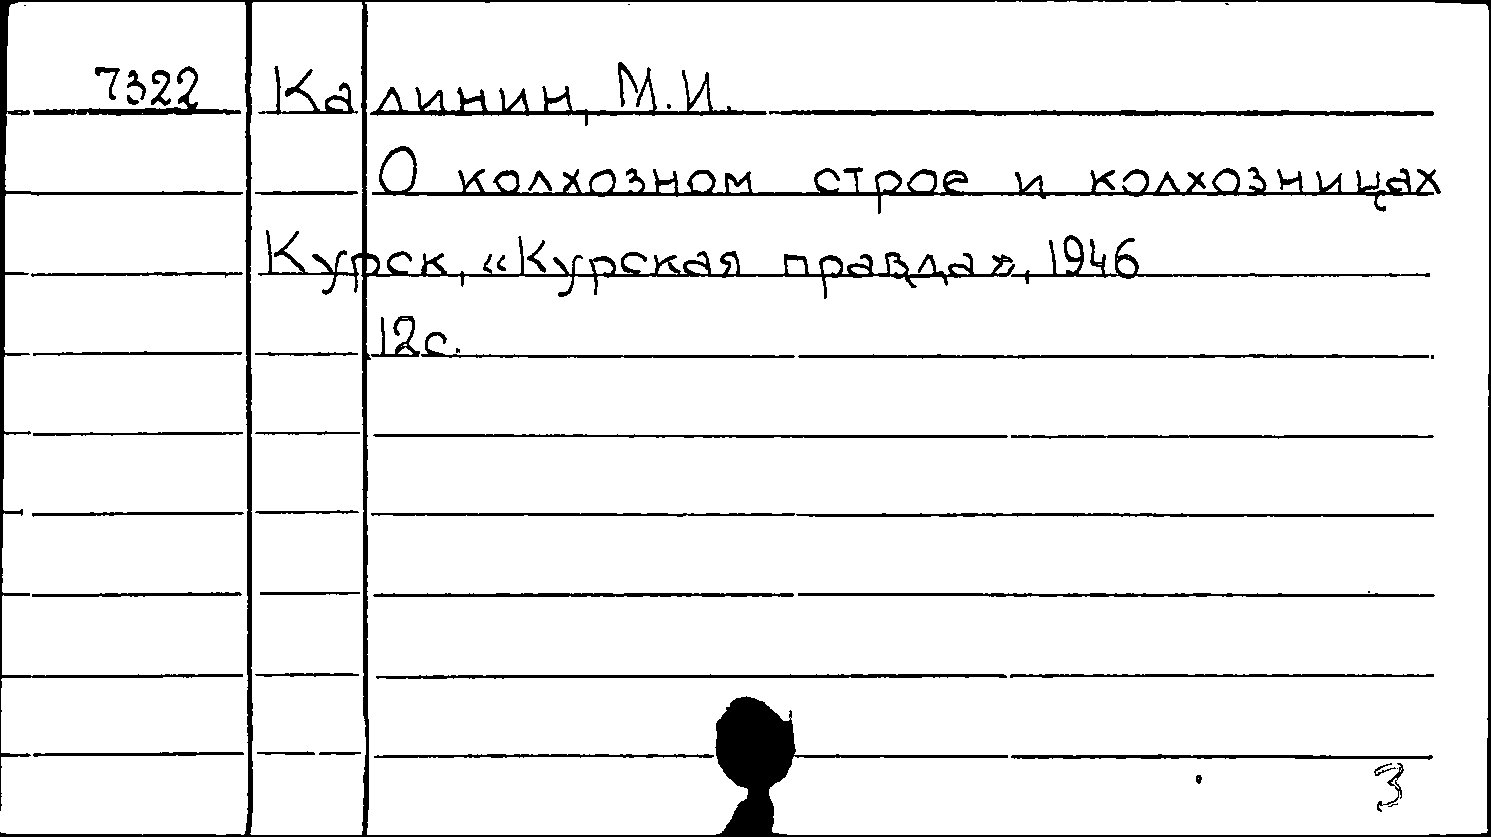 7322 Калинин, М.И.
О колхозном строе и колхозницах
Курск, «Курская правда», 1946
12с.
3